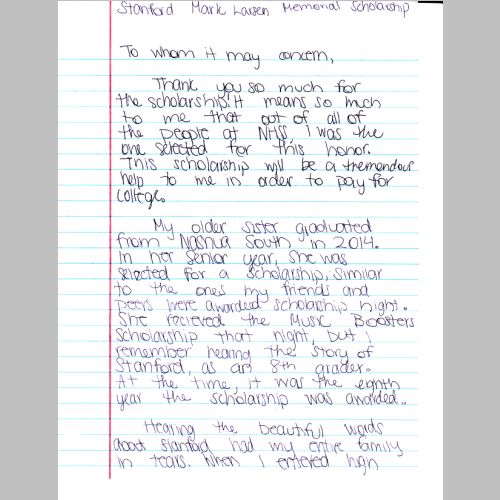 Stanford Mark Larsen Memorial Scholarship
To whom it may concern,
Thank you so much for
the scholarship! It means so much
to me that out of all of
the people at NHSS I was the
one selected for this honor.
This scholarship will be a tremendous
help to me in order to pay for
college.
My older sister graduated
from Nashua South in 2014.
In her senior year, she was
selected for a scholarship, similar
to the ones my friends and
peers were awarded scholarship night.
She recieved the Music Boosters
scholarship that night, but I
remember hearing the story of
Stanford, as an 8th grader.
At the time, it was the eighth
year the scholarship was awarded.
Hearing the beautiful words
about Stanford had my entire family
in tears. When I entered high